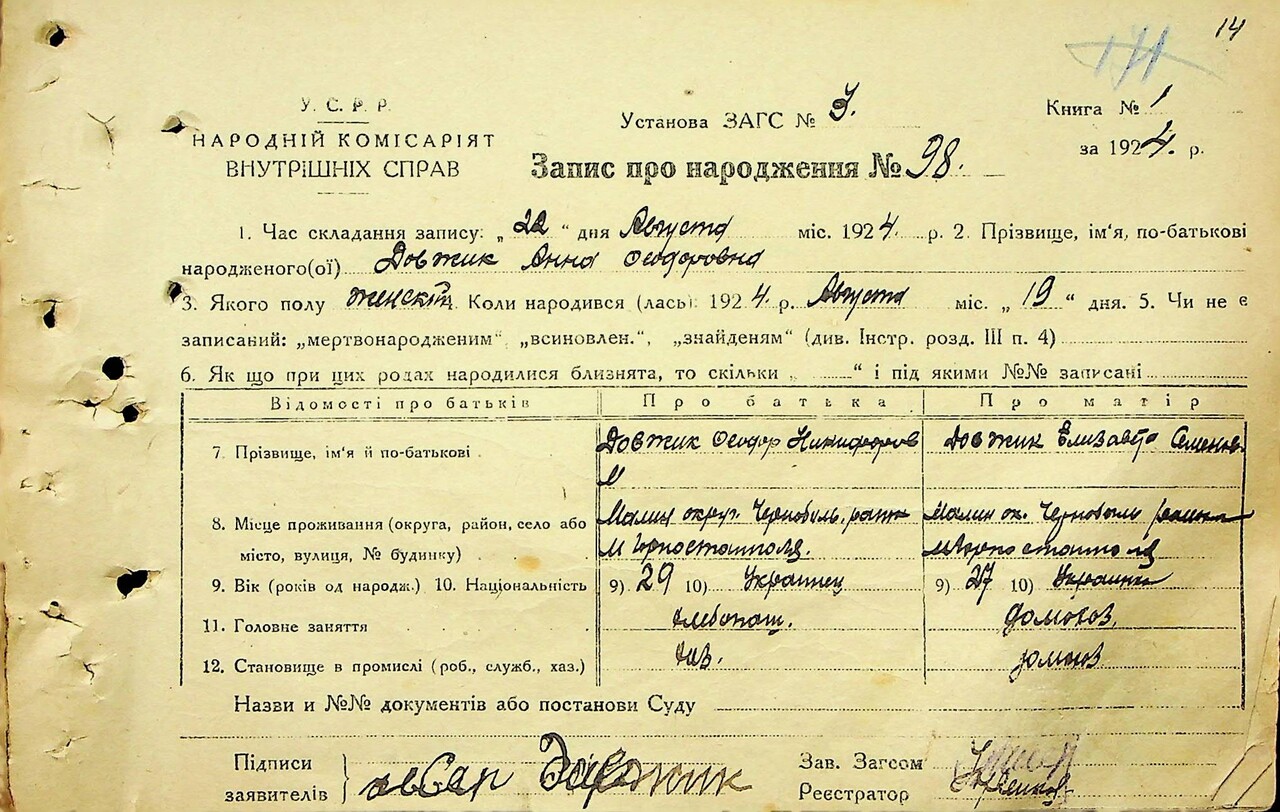 14
171
У. С. Р. Р.
НАРОДНІЙ КОМІСАРІЯТ
ВНУТРІШНІХ СПРАВ
Установа ЗАГС № 3.
Запис про народження № 98.
Книга № 1
за 1924. р.
1. Час складання запису: „ 22 “ дня Августа міс. 1924 р. 2. Прізвище, ім'я, по-батькові
народженого(ої) Довжик Анна Феодоровна
3. Якого полу женский Коли народився (лась): 1924 р. Августа міс. „ 19 “ дня. 5. Чи не є
записаний: „мертвонародженим“ „всиновлен.“, „знайденям“ (див. Інстр. розд. III п. 4)
6. Як що при цих родах народилися близнята, то скільки „ “ і під якими №№ записані
Відомості про батьків Про батька Про матір
7. Прізвище, ім'я й по-батькові Довжик Феодор Никифоров Довжик Елизавета Семенов
8. Місце проживання (округа, район, село або Малин округ. Чернобыль. Малин ок. Чернобыль
місто, вулиця, № будинку) М Горностайполя. м Горностайполя
9. Вік (років од народж.) 10. Національність 9) 29 10) Украинец 9) 27 10) Украинка
11. Головне заняття хлебопаш. домохоз.
12. Становище в промислі (роб., служб., хаз.) хаз. домохоз
Назви и №№ документів або постанови Суду
Підписи
заявителів
Зав. Загсом
Реєстратор